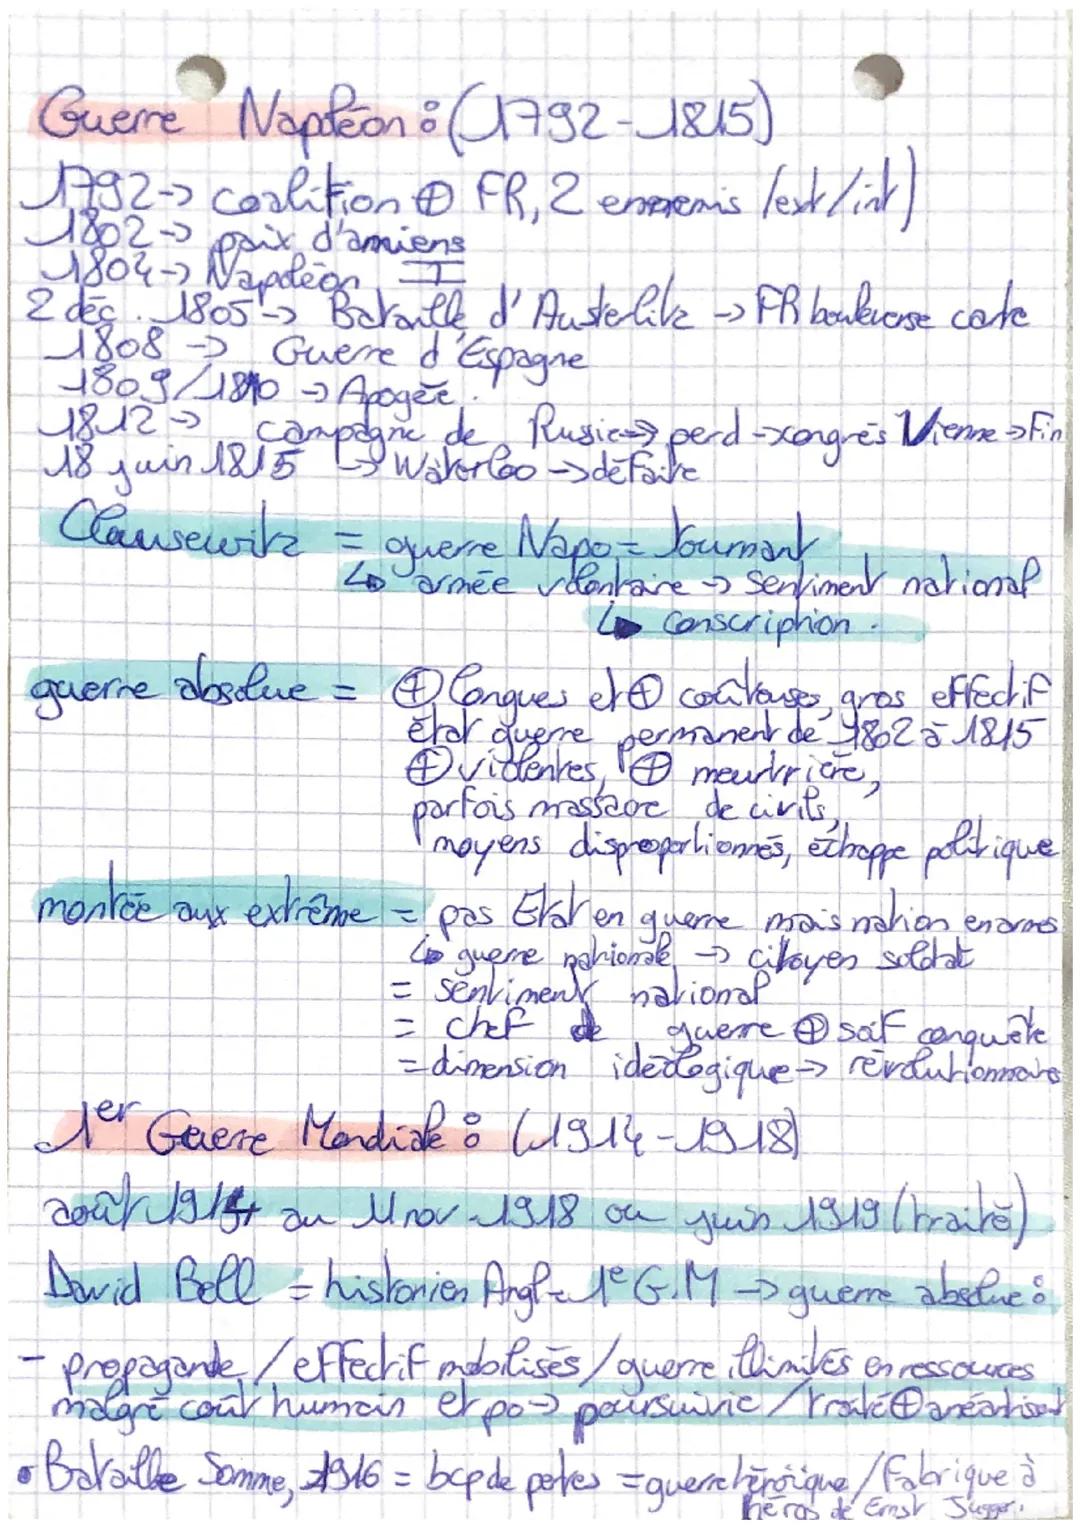 Guerre Napoléon : (1792-1815)
1792 -> coalition ⊕ FR, 2 ennemis /ext/int)
1802 -> paix d'amiens
1804 -> Napoléon I
2 déc. 1805 -> Bataille d'Austerlitz -> FR bouleverse carte
1808 -> Guerre d'Espagne
1809/1810 -> Apogée.
1812 -> campagne de Rusie -> perd -> congrès Vienne -> Fin
18 juin 1815 -> Waterloo -> défaite
Clausewitz = guerre Napo = Tournant
↳ armée volontaire -> sentiment national
↳ conscription.
guerre absolue = ⊕ longues et ⊕ coûteuses, gros effectif
état guerre permanent de 1802 à 1815
⊕ violentes, ⊕ meurtrière,
parfois massacre de civils,
moyens disproportionnés, échappe politique
montée aux extrême = pas Etat en guerre mais nation en armes
↳ guerre nationale -> citoyen soldat
= sentiment national
= chef de guerre ⊕ soif conquête
= dimension idéologique -> révolutionnaire
1er Guerre Mondiale : (1914-1918)
août 1914 au 11 nov. 1918 ou juin 1919 (traité)
David Bell = historien Angl = 1e G.M -> guerre absolue :
- propagande / effectif mobilisés / guerre illimités en ressources
malgré coût humain et po -> poursuivie / traité ⊕ anéantisent
• Bataille Somme, 1916 = bcp de pertes = guerre héroïque / Fabrique à
héros de Ernst